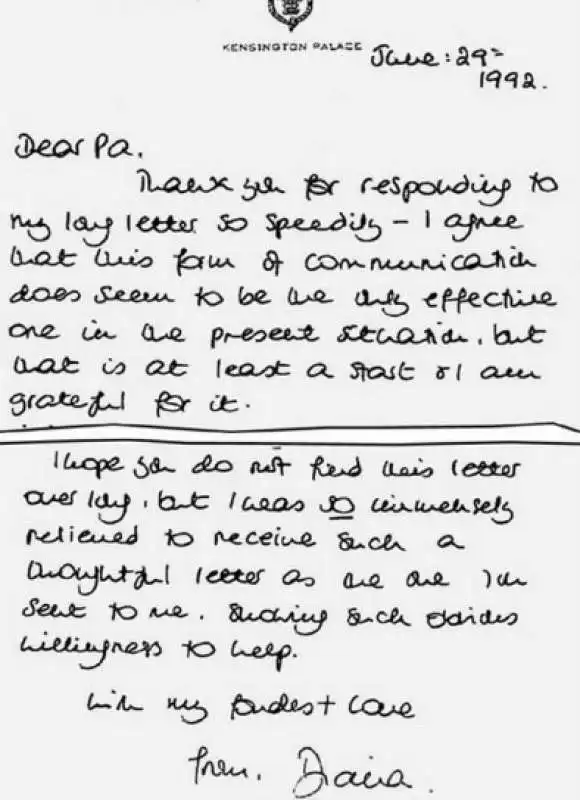 KENSINGTON PALACE
June: 29th
1992.
Dear Pa.
Thank you for responding to
my long letter so speedily – I agree
that this form of communication
does seem to be the only effective
one in the present situation, but
that is at least a start & I am
grateful for it.
I hope you do not find this letter
over long, but I was so immensely
relieved to receive such a
thoughtful letter as the one you
sent to me, showing such obvious
willingness to help.
with my fondest love
from, Diana.